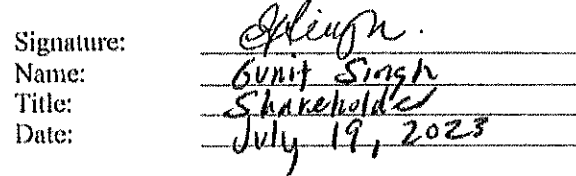 Signature: GSingh.
Name: Gunit Singh
Title: Shareholder
Date: July 19, 2023